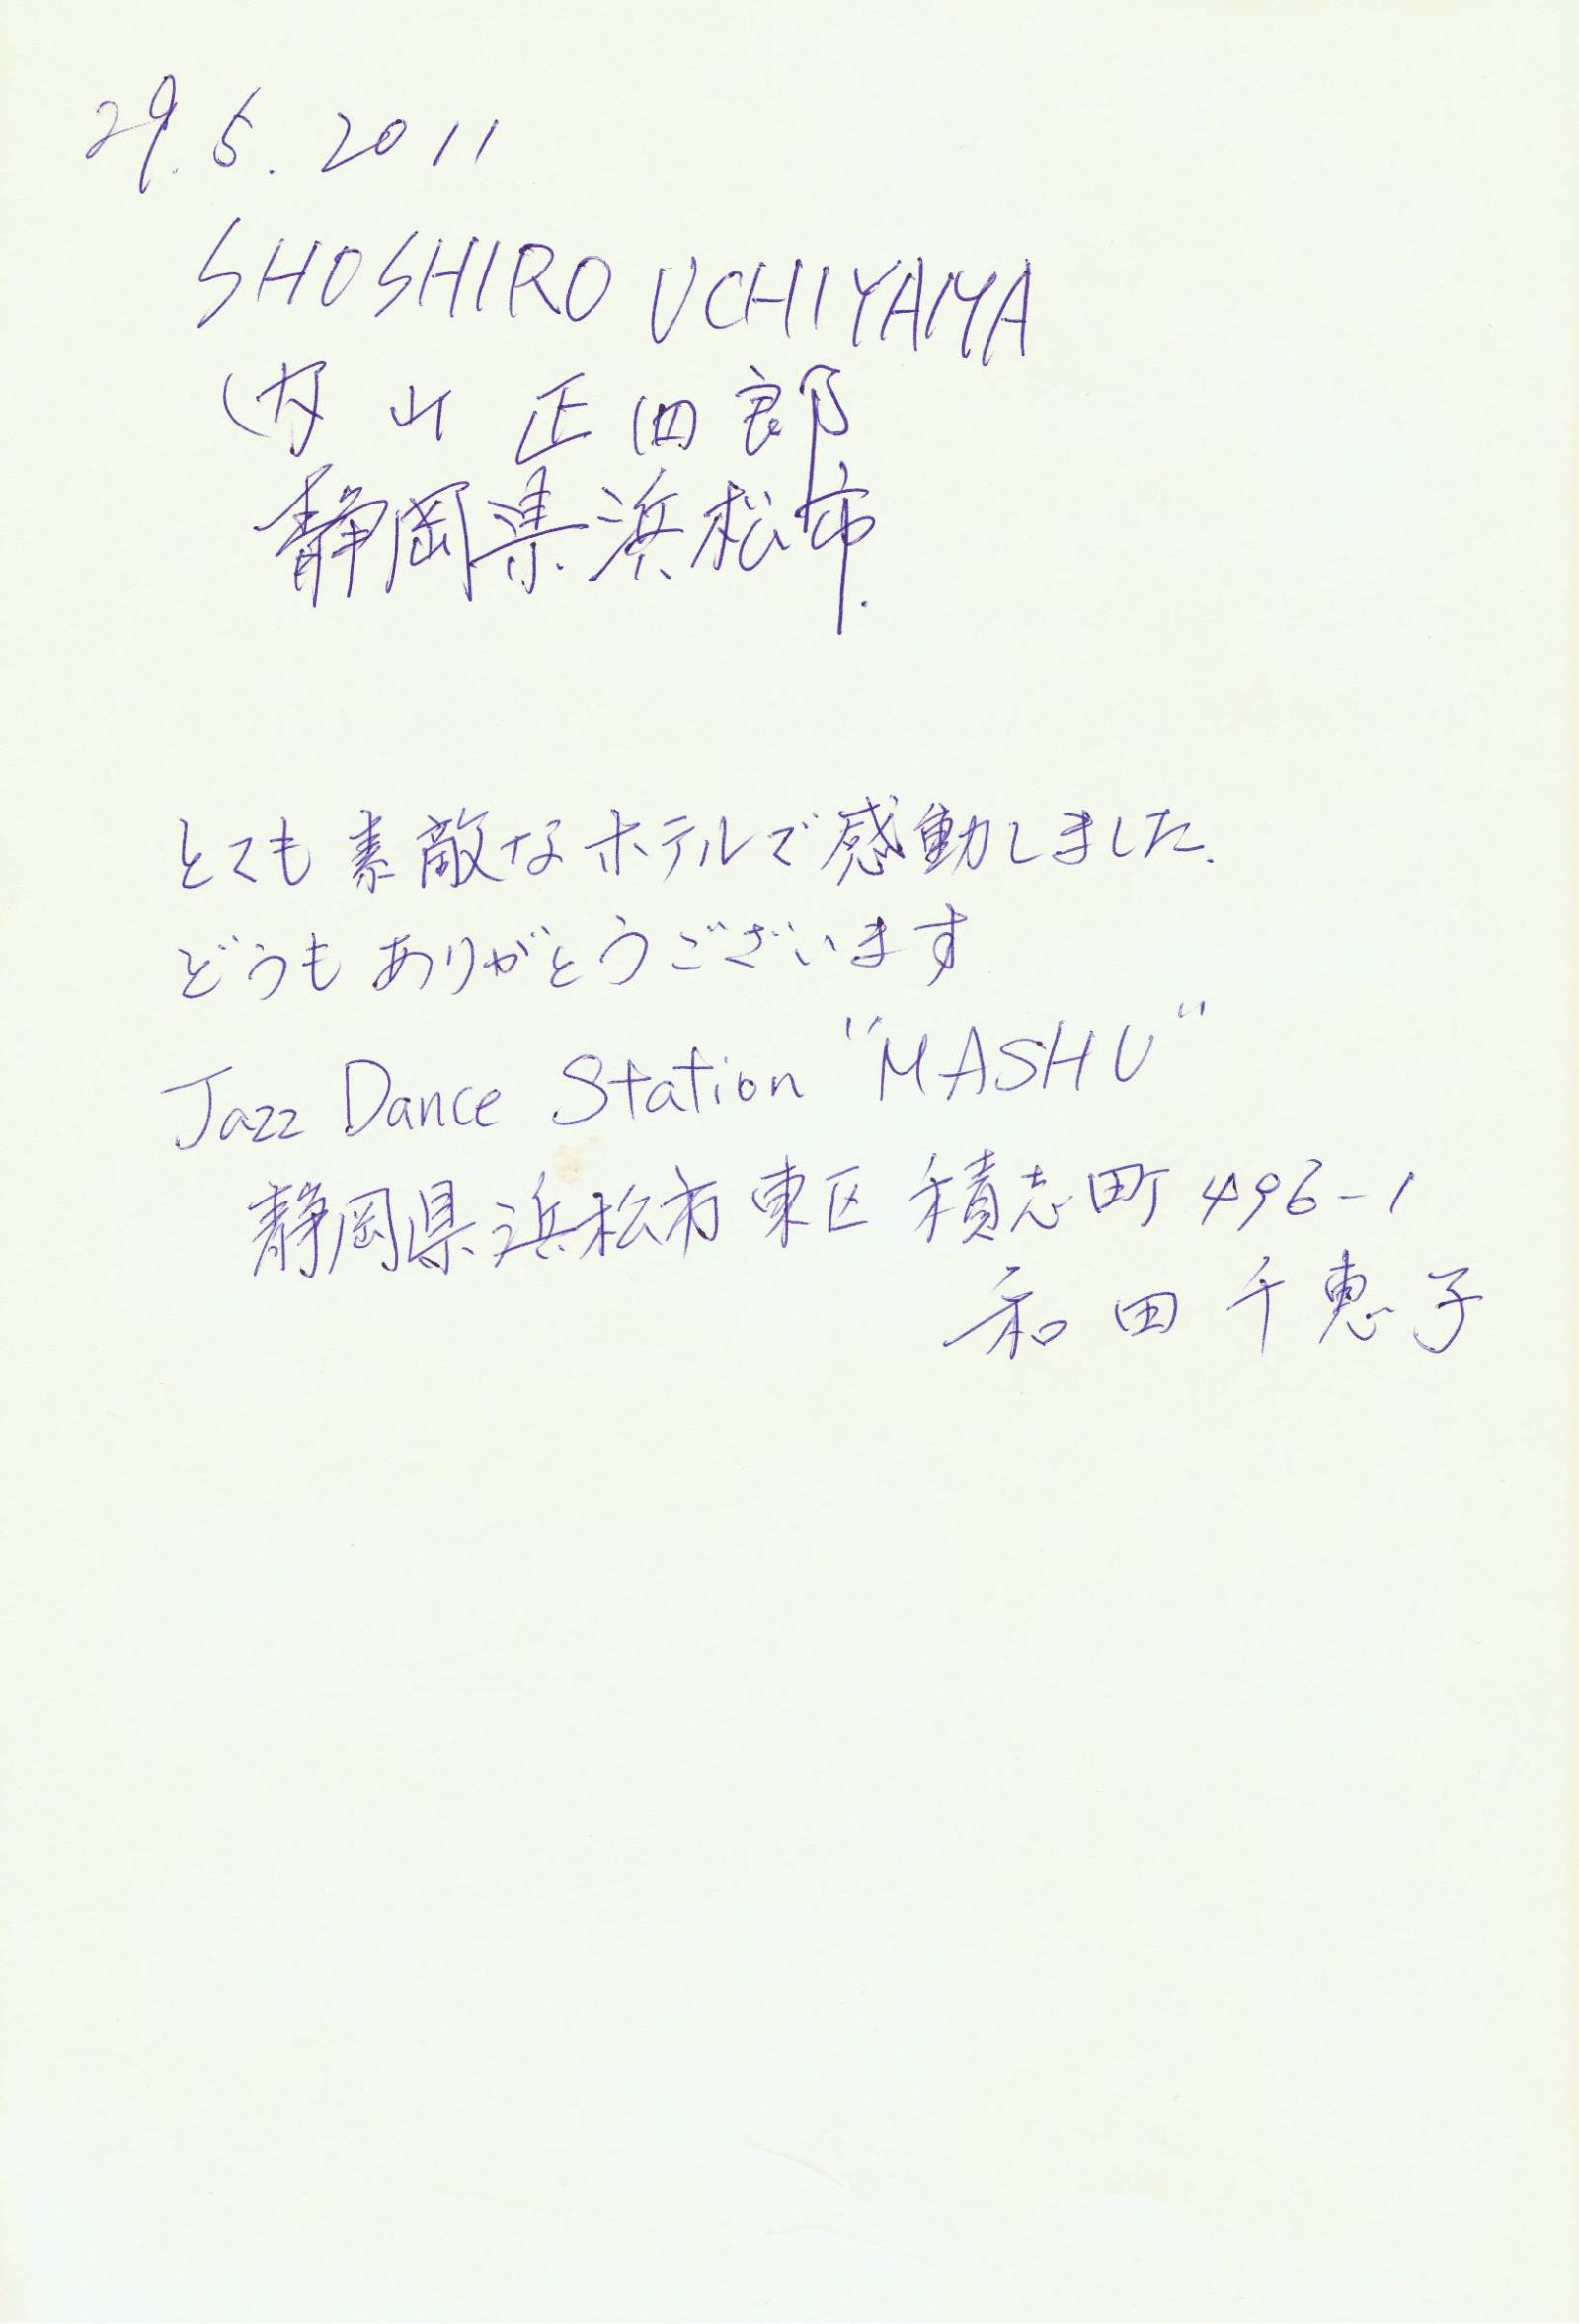 29.5.2011
SHOSHIRO UCHIYAMA
内山正四郎
静岡県浜松市.
とても素敵なホテルで感動しました.
どうもありがとうございます
Jazz Dance Station "MASHU"
静岡県浜松市東区積志町496-1
和田千恵子